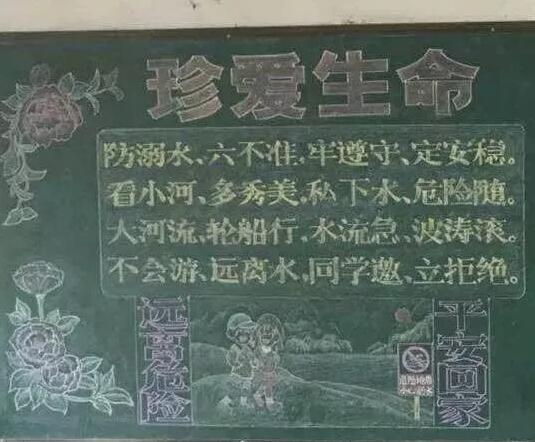 珍爱生命
防溺水、六不准,牢遵守、定安稳。
看小河、多秀美,私下水、危险随。
大河流、轮船行,水流急、波涛滚。
不会游、远离水,同学邀、立拒绝。
远离危险
平安回家
小心防水